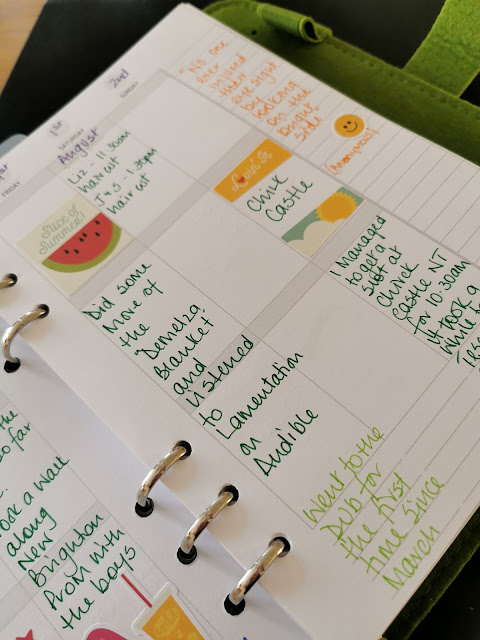 FRIDAY
1st
SATURDAY
August
Liz - 11.30am
haircut
J & S - 1.30pm
haircut
Slice of
Summer
Did some
more of
the
"Demelza
Blanket"
and
listened
to
Lamentation
on
Audible
2nd
SUNDAY
Lovin it
Chirk
Castle
I Managed
to get a
slot at
Chirk
Castle NT
for 10.30am
it took a
while
Went to the
Pub for
the first
time since
March
No one
ever
injured
their
eyesight
by
looking
on the
bright
side
(Anonymous)
the
so far
took a walk
along
New
Brighton
Prom with
the boys